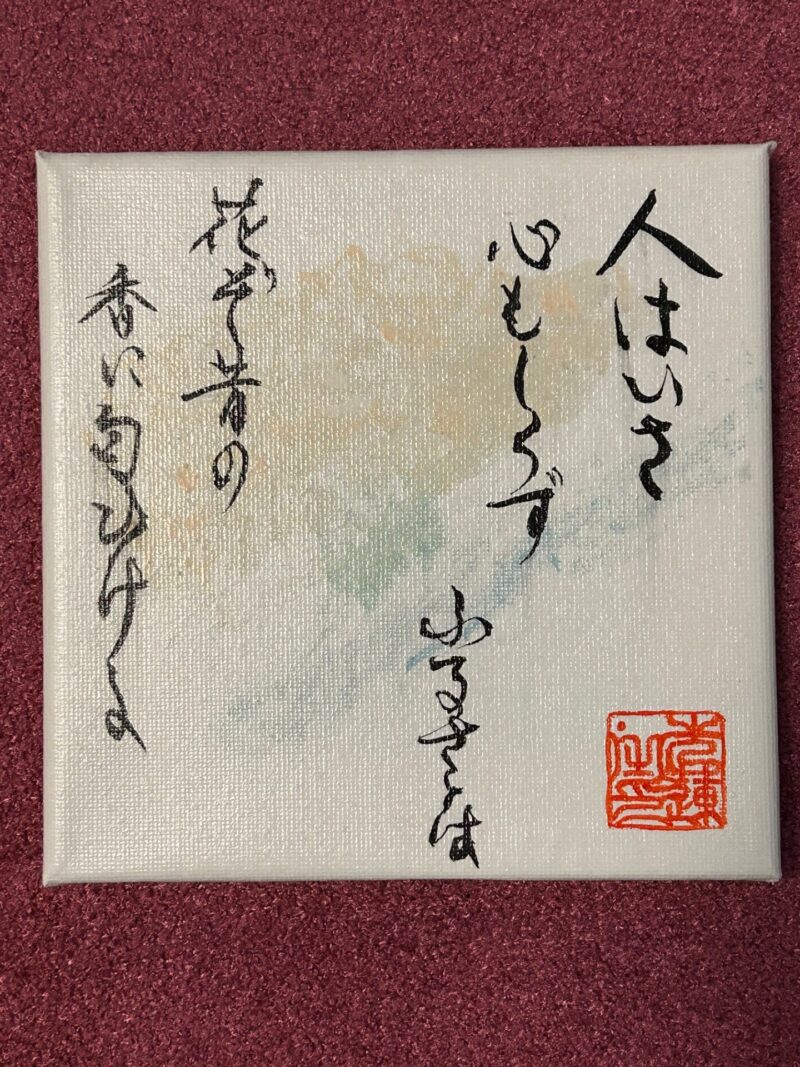 人はいさ
心もしらず
ふるさとは
花ぞ昔の
香に匂ひける